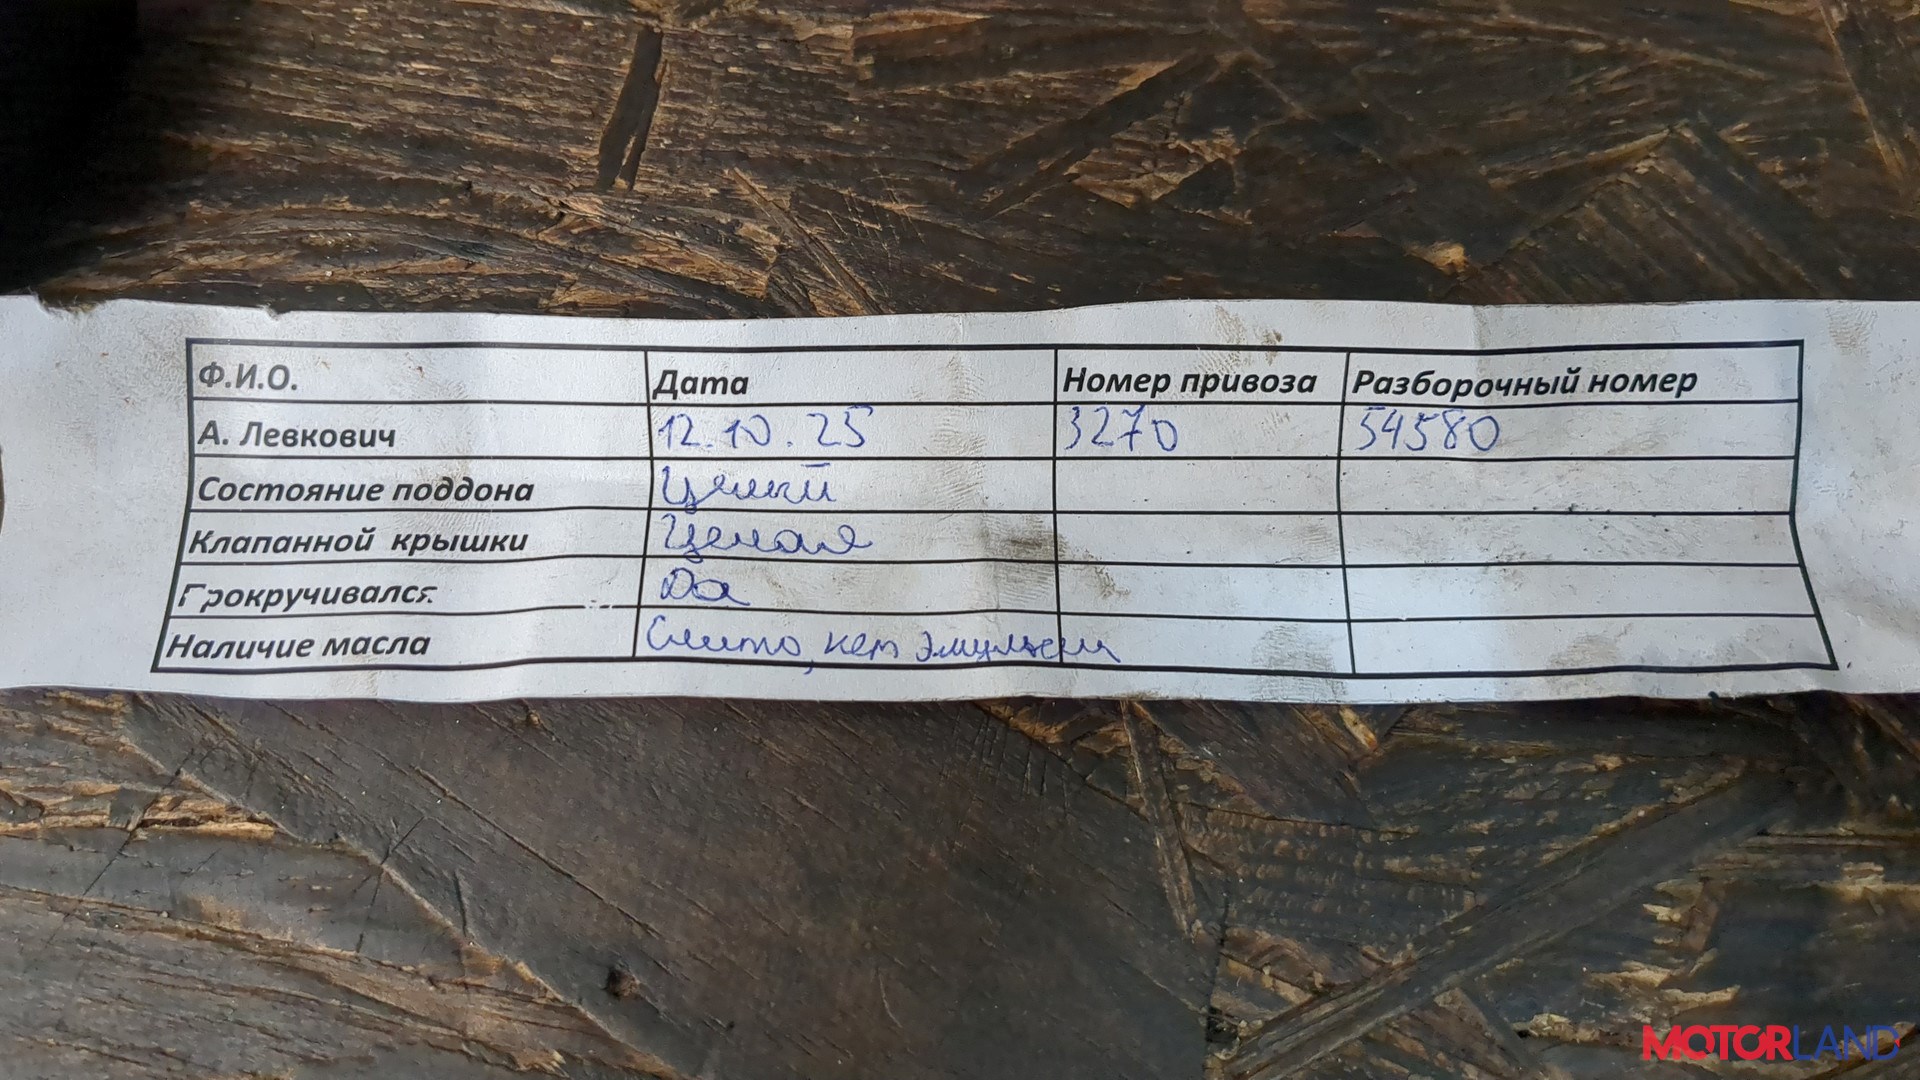 Ф.И.О. Дата Номер привоза Разборочный номер
А. Левкович 12.10.25 3270 54580
Состояние поддона Целый
Клапанной крышки Целая
Прокручивался Да
Наличие масла Слито, нет эмульсии
MOTORLAND